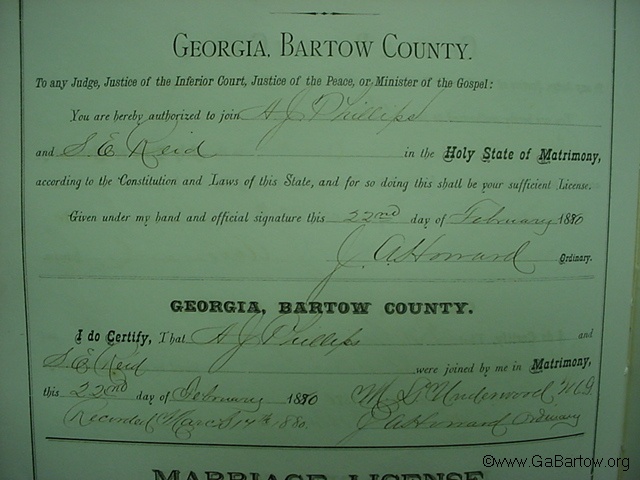 GEORGIA, BARTOW COUNTY.
To any Judge, Justice of the Inferior Court, Justice of the Peace, or Minister of the Gospel:
You are hereby authorized to join A J Phillips
and S. E. Reid in the Holy State of Matrimony,
according to the Constitution and Laws of this State, and for so doing this shall be your sufficient License.
Given under my hand and official signature this 22nd day of February 1880
J. A. Howard Ordinary.
GEORGIA, BARTOW COUNTY.
I do Certify, That A J Phillips and
S. E. Reid were joined by me in Matrimony,
this 22nd day of February 1880 Underwood, M.G.
Recorded March 17th 1880. J A Howard Ordinary
MARRIAGE LICENSE
©www.GaBartow.org